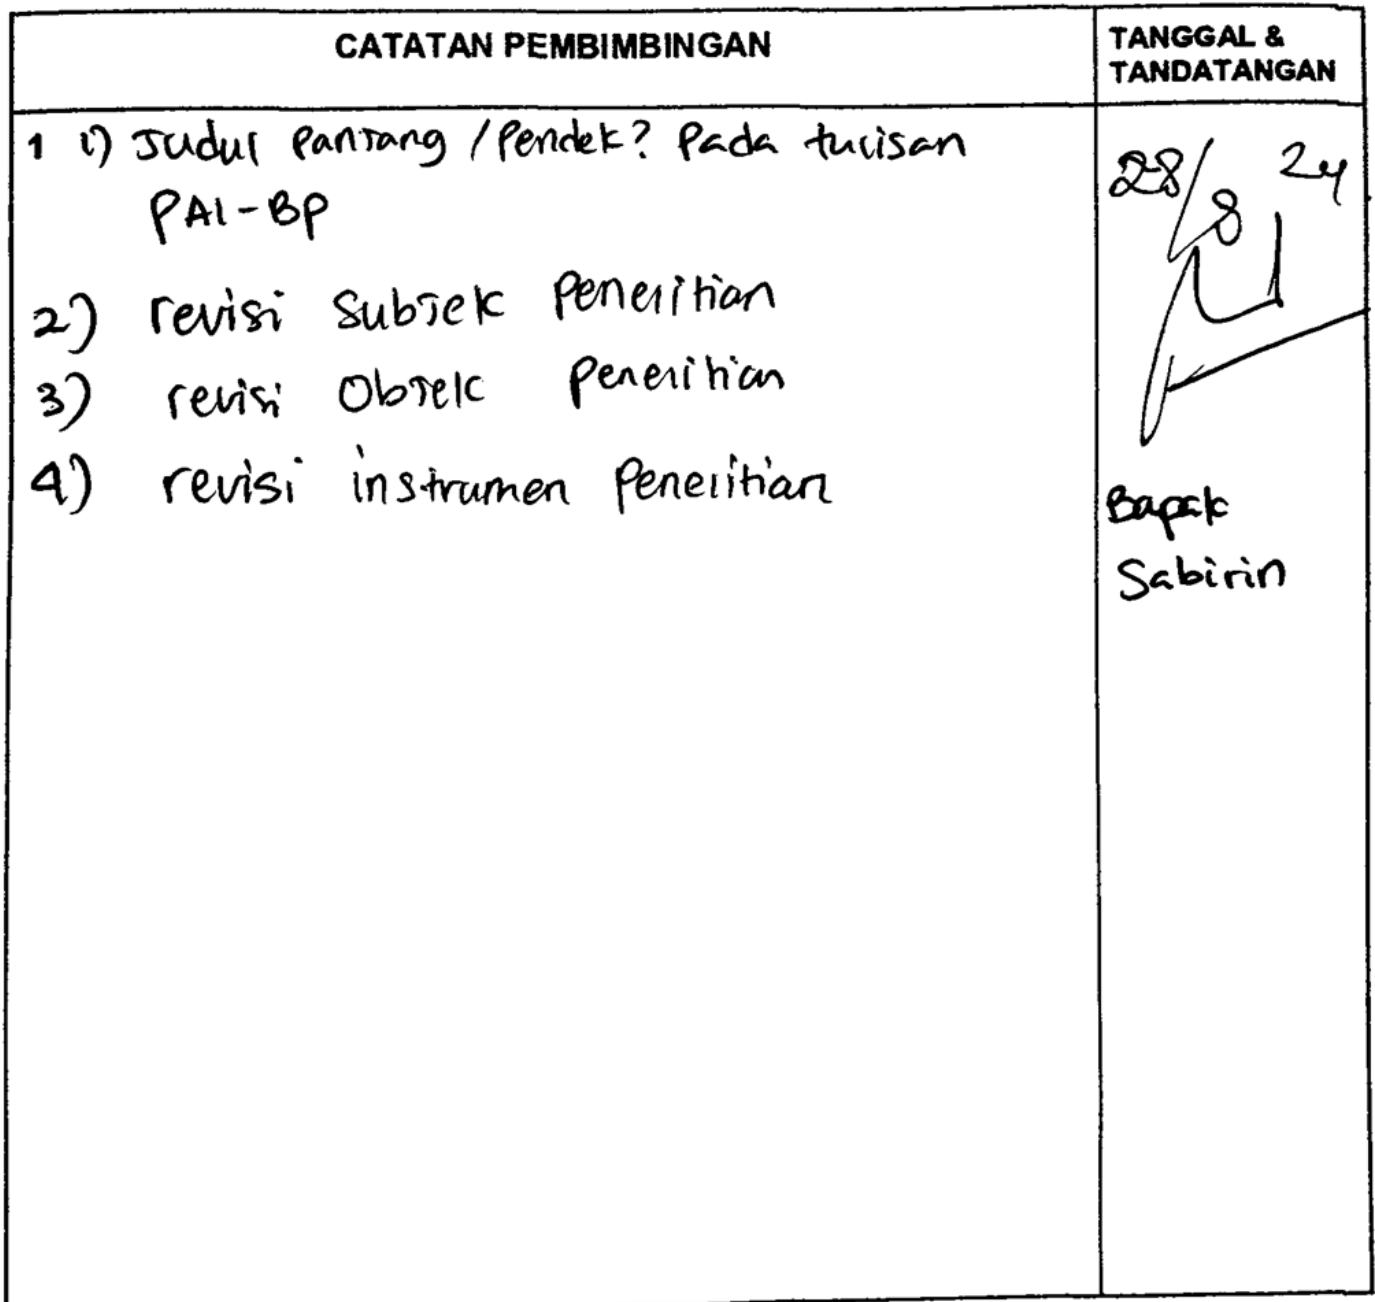 CATATAN PEMBIMBINGAN
TANGGAL &
TANDATANGAN
1 1) Judul Panjang / Pendek? Pada tulisan
PAI-BP
2) revisi Subjek Penelitian
3) revisi Objek Penelitian
4) revisi instrumen Penelitian
28/8 24
Bapak
Sabirin